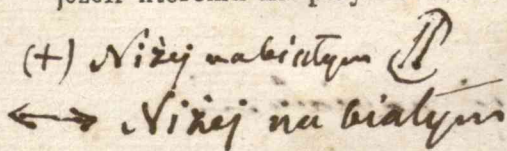 (+) Niżej na białym
↔ Niżej na białym